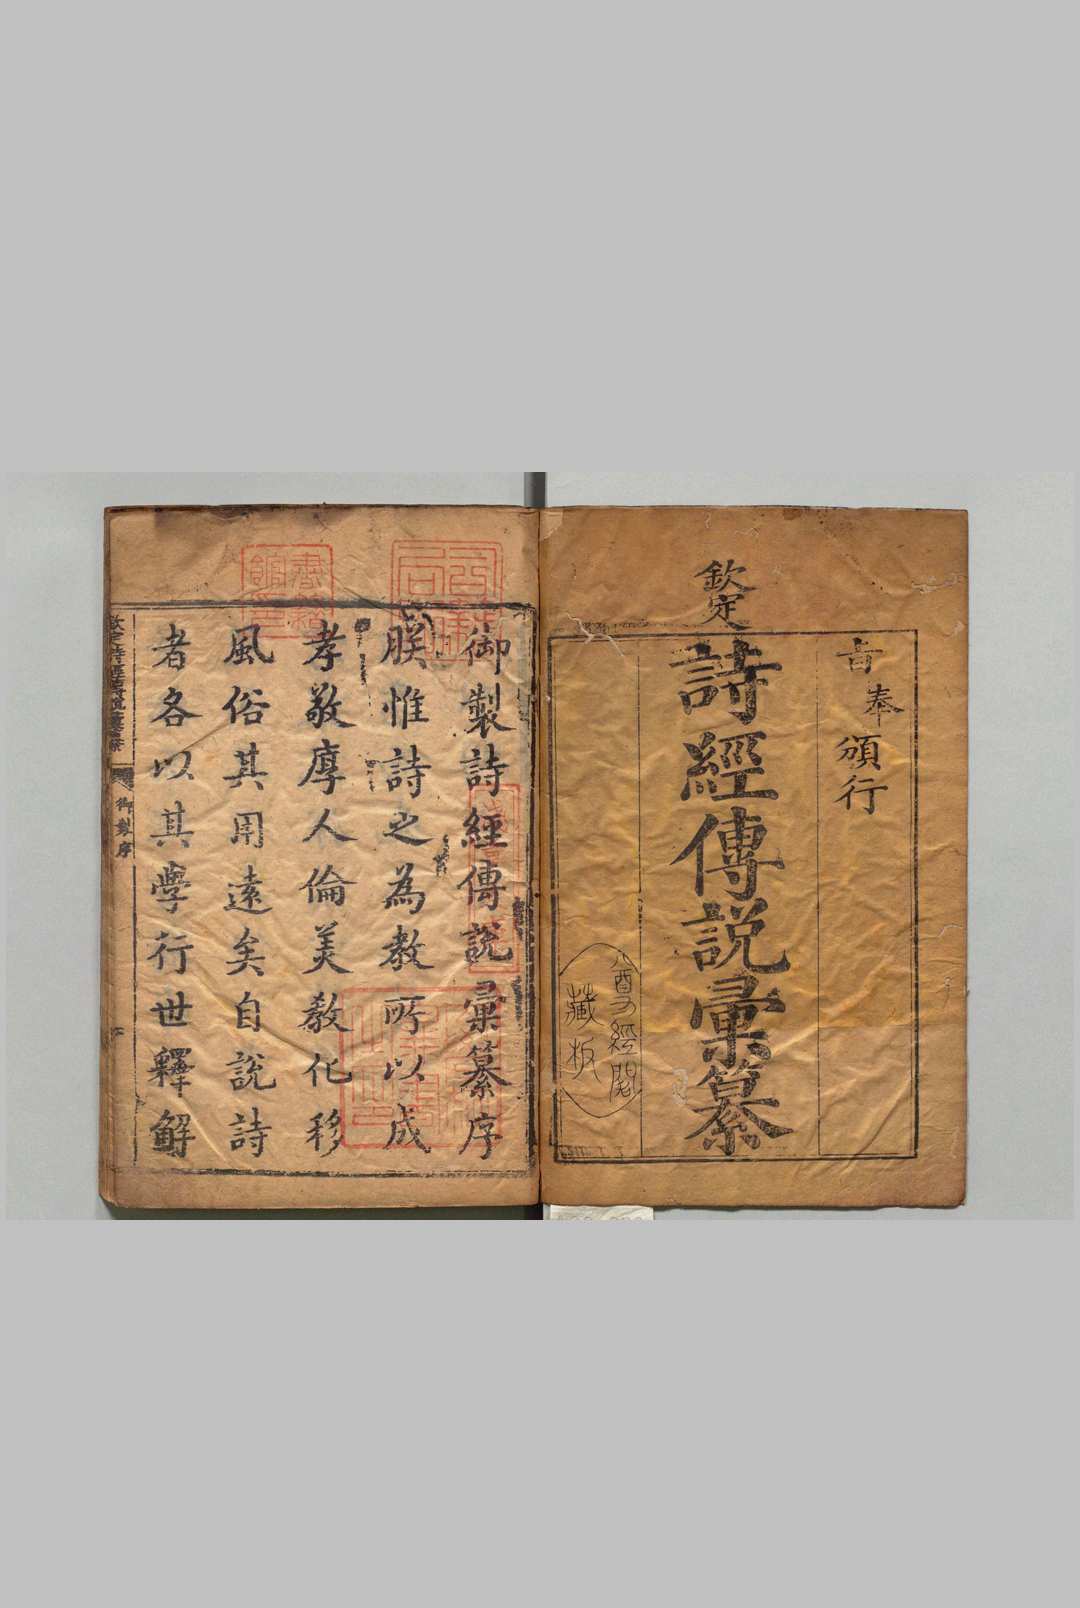 奉
旨頒行
欽定
詩經傳說彙纂
尊經閣
藏板
御製詩經傳說彙纂序
朕惟詩之為教所以成
孝敬厚人倫美教化移
風俗其用遠矣自說詩
者各以其學行世釋解
欽定詩經傳說彙纂
御製序